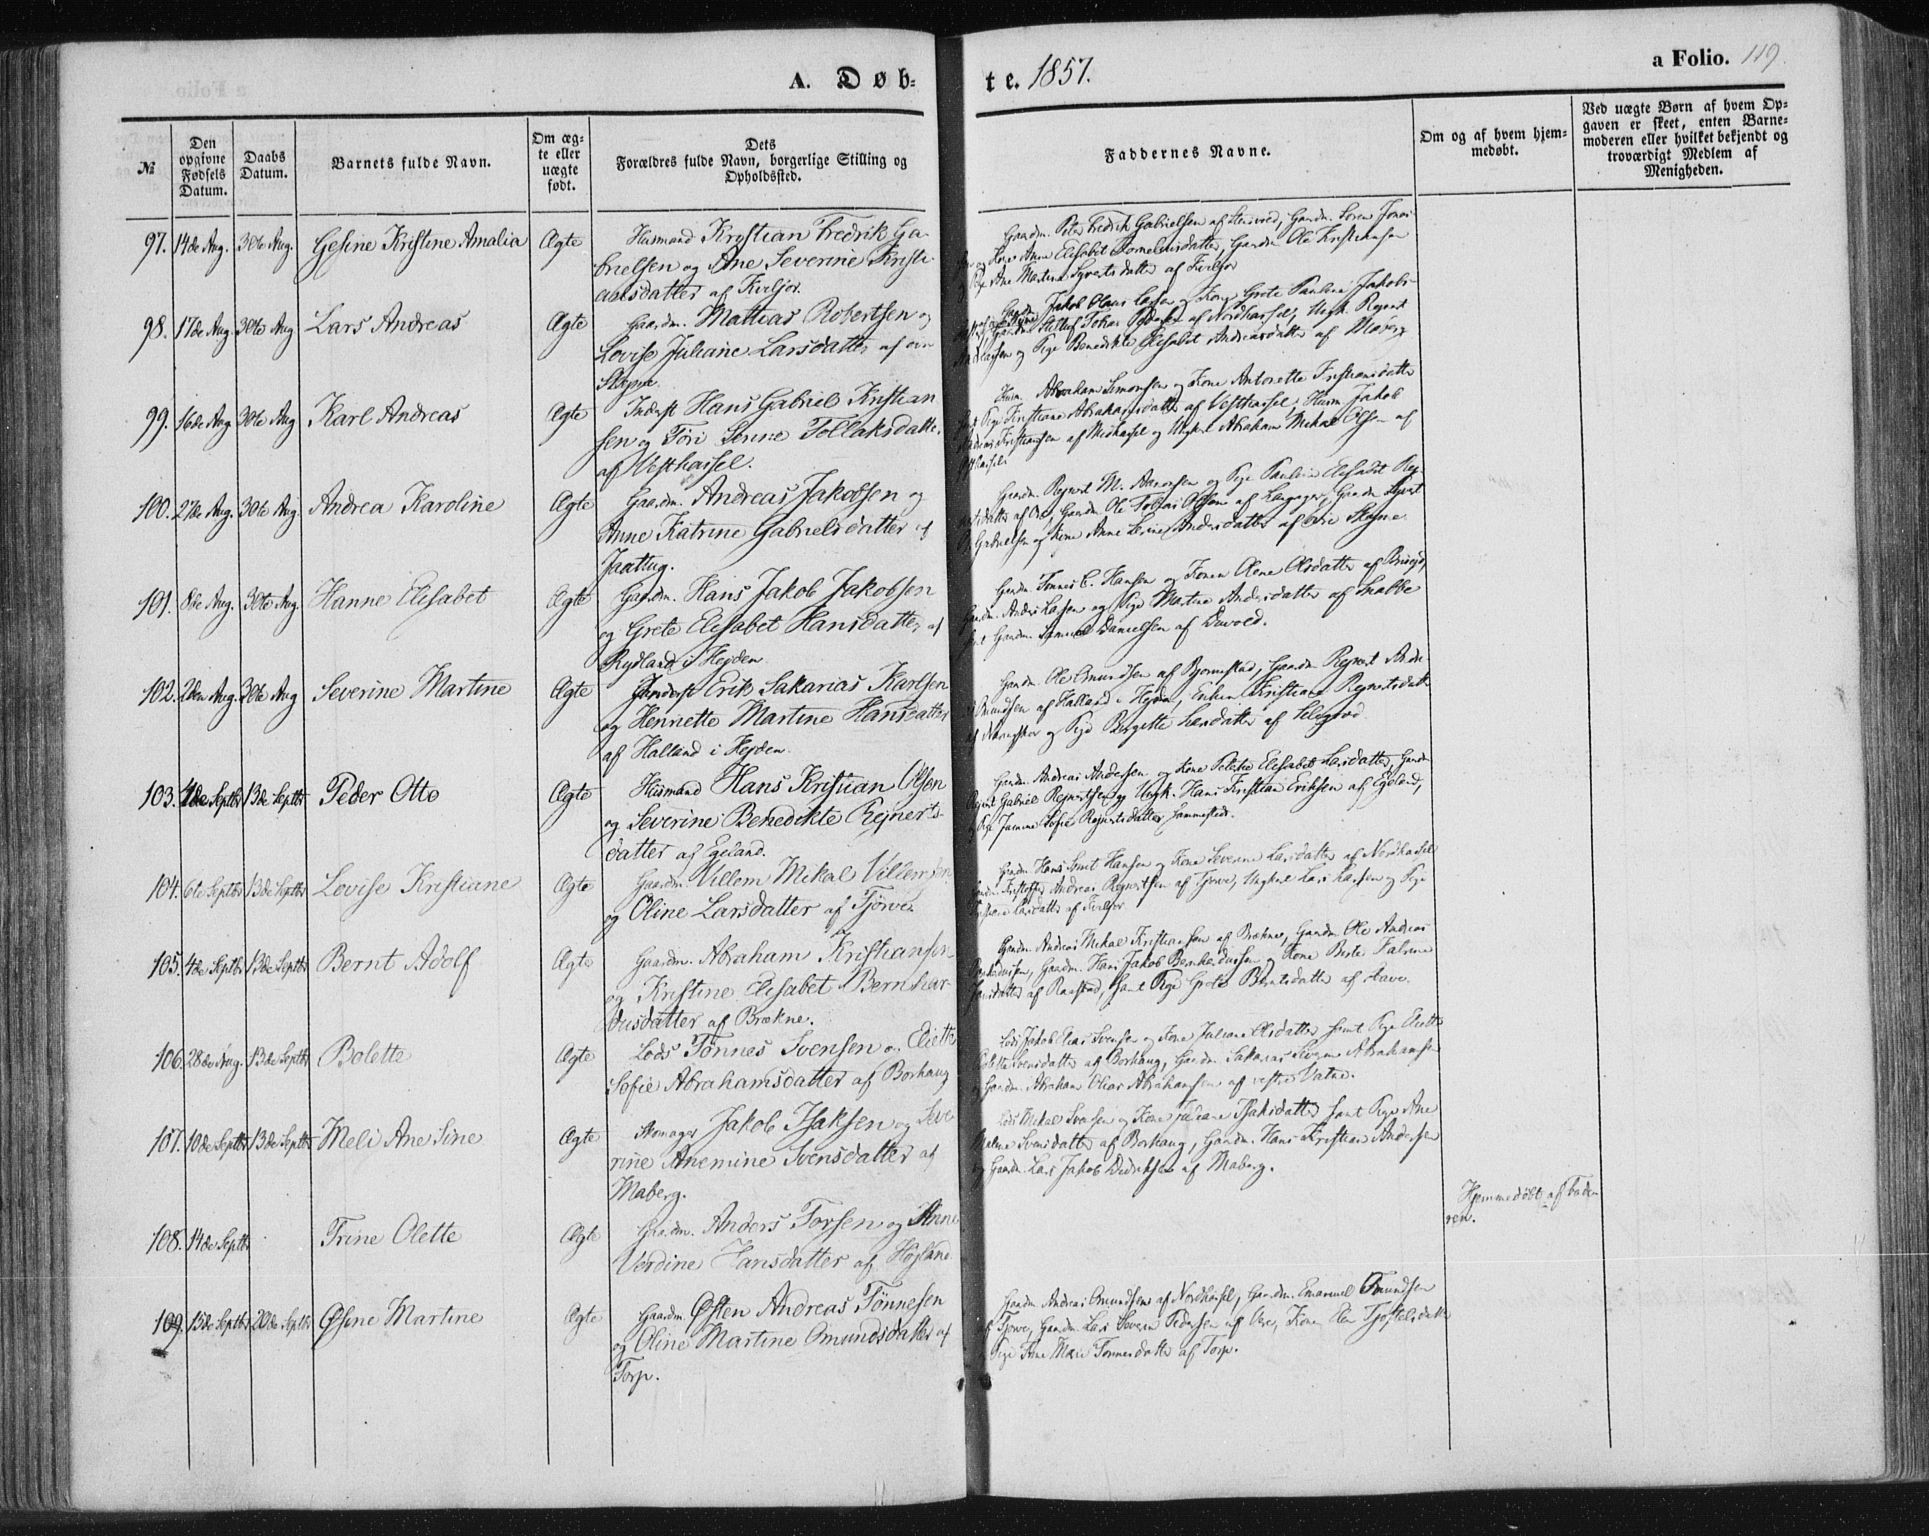 A. Døb-
te. 1857.
a Folio. 119.
№
Den opgivne Fødsels Datum.
Daabs Datum.
Barnets fulde Navn.
Om ægte eller uægte født.
Dets Forældres fulde Navn, borgerlige Stilling og Opholdssted.
Faddernes Navne.
Om og af hvem hjemmedøbt.
Ved uægte Børn af hvem Opgaven er skeet, enten Barnemoderen eller hvilket bekjendt og troværdigt Medlem af Menigheden.
97. 14de Aug. 30te Aug. Gesine Kristine Amalia Ægte Husmand Kristian Fredrik Ga-
brielsen og Ane Severine Kristi-
ansdatter af Kviljor.
Gaardm. Peter Fredrik Gabrielsen af Steinvod, Gaardm. Søren Jonas
Kone Anne Elisabet Kornelius datter, Gaardm Ole Kristiansen
Pige Ane Martine Syvertsdatter af Kviljor
98. 17de Aug. 30te Aug Lars Andreas Ægte Gaardm. Mattias Robertsen og
Lovise Juliane Larsdatter af øvre
Skeime.
Jakob Claus Larsen og Kone Grete Pauline Jakobs-
Tobias Pedersen af Nordhassel, Ungk. Rejert
og Pige Benedikte Elisabet Andreasdatter af
99. 16de Aug. 30te Aug Karl Andreas Ægte Inderst Hans Gabriel Kristian
sen og Tøri Serine Tollaksdatter
af Vesthassel.
Husm. Abraham Simonsen og Kone Antonette Kristiansdatter
samt Pige Kristiane Abrahamsdatter af Vesthassel, Husm Jakob
Andreas Kristiansen af Midhassel og Ungkarl Abraham Mikal Olsen af
Østhassel.
100. 27de Aug. 30te Aug. Andrea Karoline Ægte Gaardm. Andreas Jakobsen og
Anne Katrine Gabrielsdatter af
Jaattug.
Gaardm. Rejert M. Aanonsen og Pige Pauline Elisabet Rej-
ertsdatter af Ore, Gaardm Ole Tobias Olsen af Langager, Gaardm Sivert
Gabrielsen og Kone Anne Serine Andersdatter af øvre Skeime.
101. 8de Aug. 30te Aug. Hanne Elisabet Ægte Gaardm. Hans Jakob Jakobsen
og Grete Elisabet Hansdatter af
Rydland i Hejden
Gaardm Tønnes C. Hansen og Konen Olene Olsdatter af
Gaardm. Anders Larsen og Pige Martine Andersdatter af Snabbe
samt Gaardm. Samuel Danielsen af Duvold.
102. 2den Aug. 30te Aug Severine Martine Ægte Inderst Erik Sakarias Karlsen
og Henriette Martine Hansdatter
af Halland i Hejden.
Gaardm. Ole Omundsen af Bjørnestad, Gaardm Rejert Andr
Omundsen af Halland i Hejden, Enken Kristiane Rejertsdatter
og Pige Bergitte Larsdatter af Selegrod.
103. 4de Septbr 13de Septbr Peder Otto Ægte Husmand Hans Kristian Olsen
og Severine Benedikte Rejnerts-
datter af Egeland.
Gaardm. Andreas Andersen og Kone Elisabet Larsdatter, Gaardm
Rejert Gabriel Rejertsen og Ungk. Hans Kristian Eriksen af Egeland,
Pige Jamine Sofie Rejertsdatter, sammesteds.
104. 6te Septbr 13de Septbr Lovise Kristiane Ægte Gaardm. Villem Mikal Villemsen
og Oline Larsdatter af Tjørve.
Gaardm Hans Smit Hansen og Kone Severine Larsdatter af Nordhassel
Gaardm. Kristoffer Andreas Rejertsen af Tjørve, Ungkarl Lars Larsen og Pige
Larsdatter af Kviljor
105. 4de Septbr 13de Septbr Bernt Adolf Ægte Gaardm. Abraham Kristiansen
og Kristine Elisabet Bernhar-
dusdatter af Brækne.
Gaardm. Andreas Mikal Kristiansen af Brækne, Gaardm Ole Andreas
Bernhardussen, Gaardm. Hans Jakob Bernhardussen og Kone Berte Katrine
Jansdatter af Raustad, samt Pige Grete Berntsdatter af Aave.
106. 28de Aug. 13de Septbr Bolette Ægte Lods Tønnes Svensen og Eliette
Sofie Abrahamsdatter af Borhaug
Lods Jakob Elias Svensen og Kone Juliane Olsdatter samt Pige Eliette
Svensdatter af Borhaug, Gaardm Sakarias Severin Abrahamsen
og Gaardm. Abraham Olias Abrahamsen af vestre Vatne.
107. 10de Septbr 13de Septbr Meli Ane Sine Ægte Skomager Jakob Isaksen og Seve
rine Anemine Svensdatter af
Maberg.
Lods Mikal Svensen og Kone Juliane Isaksdatter samt Pige Ane
Malene Svensdatter af Borhaug, Gaardm. Hans Kristian Andersen
og Gaardm Lars Jakob Didriksen af Maberg.
108. 14de Septbr Trine Olette Ægte Gaardm. Anders Torsen og Anne
Verdine Hansdatter af Højland
Hjemmedøbt af Fade-
ren.
109. 15de Septbr 20de Septbr Øsine Martine Ægte Gaardm Østen Andreas Tønnesen
og Oline Martine Omundsdatter af
Torp.
Gaardm Andreas Omundsen af Nordhassel, Gaardm. Emanuel Omundsen
af Tjørve, Gaardm Lars Severin Pedersen af Ore, Konen Elen Tjøstelsdatter
Pige Ane Marie Tønnesdatter af Torp.